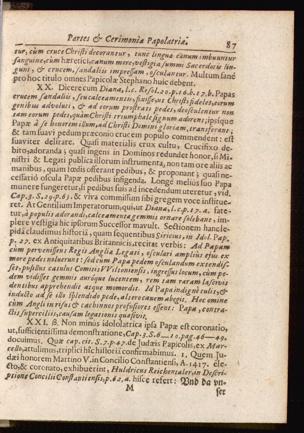 Partes & Cerimoniæ Papolatriæ. 87
tur, cùm cruce Christi decorantur, tunc lingua canum imbuuntur
sanguine, cùm hæretici, canum more, vestigia summi Sacerdotis lin-
gunt, & crucem, sandaliis impressam, osculantur. Multum sanè
pro hoc titulo omnes Papicolæ Stephano huic debent.
XX. Dicere cum Diana, l. c. Resol. 20. p. 16. b. 17. b. Papas
crucem sandaliis, seu calceamentis, fixisse, ut Christi fideles, earum
genibus advoluti, & ad eorum prostrati pedes, deosculentur non
tam eorum pedes, quàm Christi triumphale signum adorent; ipsique
Papæ à se honorem illum, ad Christi Domini gloriam, transferant;
& tam suavi pedum præconio crucem populo commendent: est
suaviter delirare. Quasi materialis crux cultu, Crucifixo de-
bito, adoranda; quasi ingens in Dominos redundet honor, si Mi-
nistri & Legati publica illorum instrumenta, non tam ore aliis ac
manibus, quàm tectis offerant pedibus, & proponant; quasi ne-
cessariò oscula Papæ pedibus infigenda. Longè melius suo Papa
munere fungeretur, si pedibus suis ad incedendum uteretur, vid.
Cap. 3. S. 19. p. 63, & viva commissum sibi gregem voce institue-
ret. At Gentilium Imperatorum, quibus Diana, l. c. p. 17. a. fate-
tur, à populis adorandi, calceamenta gemmis ornare solebant, im-
plere vestigia hic ipsorum Successor mavult. Sectionem huncle-
pidâ claudimus historiâ, quam sequentibus Siricius, in Idol. Pap.
p. 27. ex Antiquitatibus Britannicis, recitat verbis: Ad Papam
cum pervenissent Regis Angliæ Legati, osculari amplius ejus ex
more pedes noluerunt: sed cum Papa pedem osculandum extendis-
set, psphus canibus Comitis VViltoniensis, ingressus locum, cùm pe-
dem vidisset gemmis auróque lucentem, rem tam raram lascivis
dentibus apprehendit atque momordit. Id Papa indignè tulit, &
inducto ad se illo splendido pede, altero canem abegit. Hoc omine
cùm Angli in risus & cachinnos prefusiores essent: Papa, contra-
ctis superciliis, causam legationis quæsivit.
XXI. 8. Non minùs idololatrica ipsâ Papæ est coronatio,
ut, sufficientissimâ demonstratione, Cap. 3. S. 6--10. pag. 46--49.
docuimus. Quæ cap. eit. S. 7. p. 47. de Judæis Papicolis, ex Mar-
cello, attulimus, triplici hîc historiâ confirmabimus. 1. Quem Ju-
dæi honorem Martino V. in Concilio Constantiensi, A. 1417. ele-
cto, & coronato, exhibuerint, Huldricus Reichentaler, in Descri-
ptione Concilii Constantiensis, p. 42. a. hisce refert: Und da un-
M ser